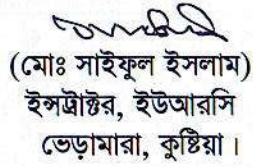 (মোঃ সাইফুল ইসলাম)
ইন্সট্রাক্টর, ইউআরসি
ভেড়ামারা, কুষ্টিয়া।